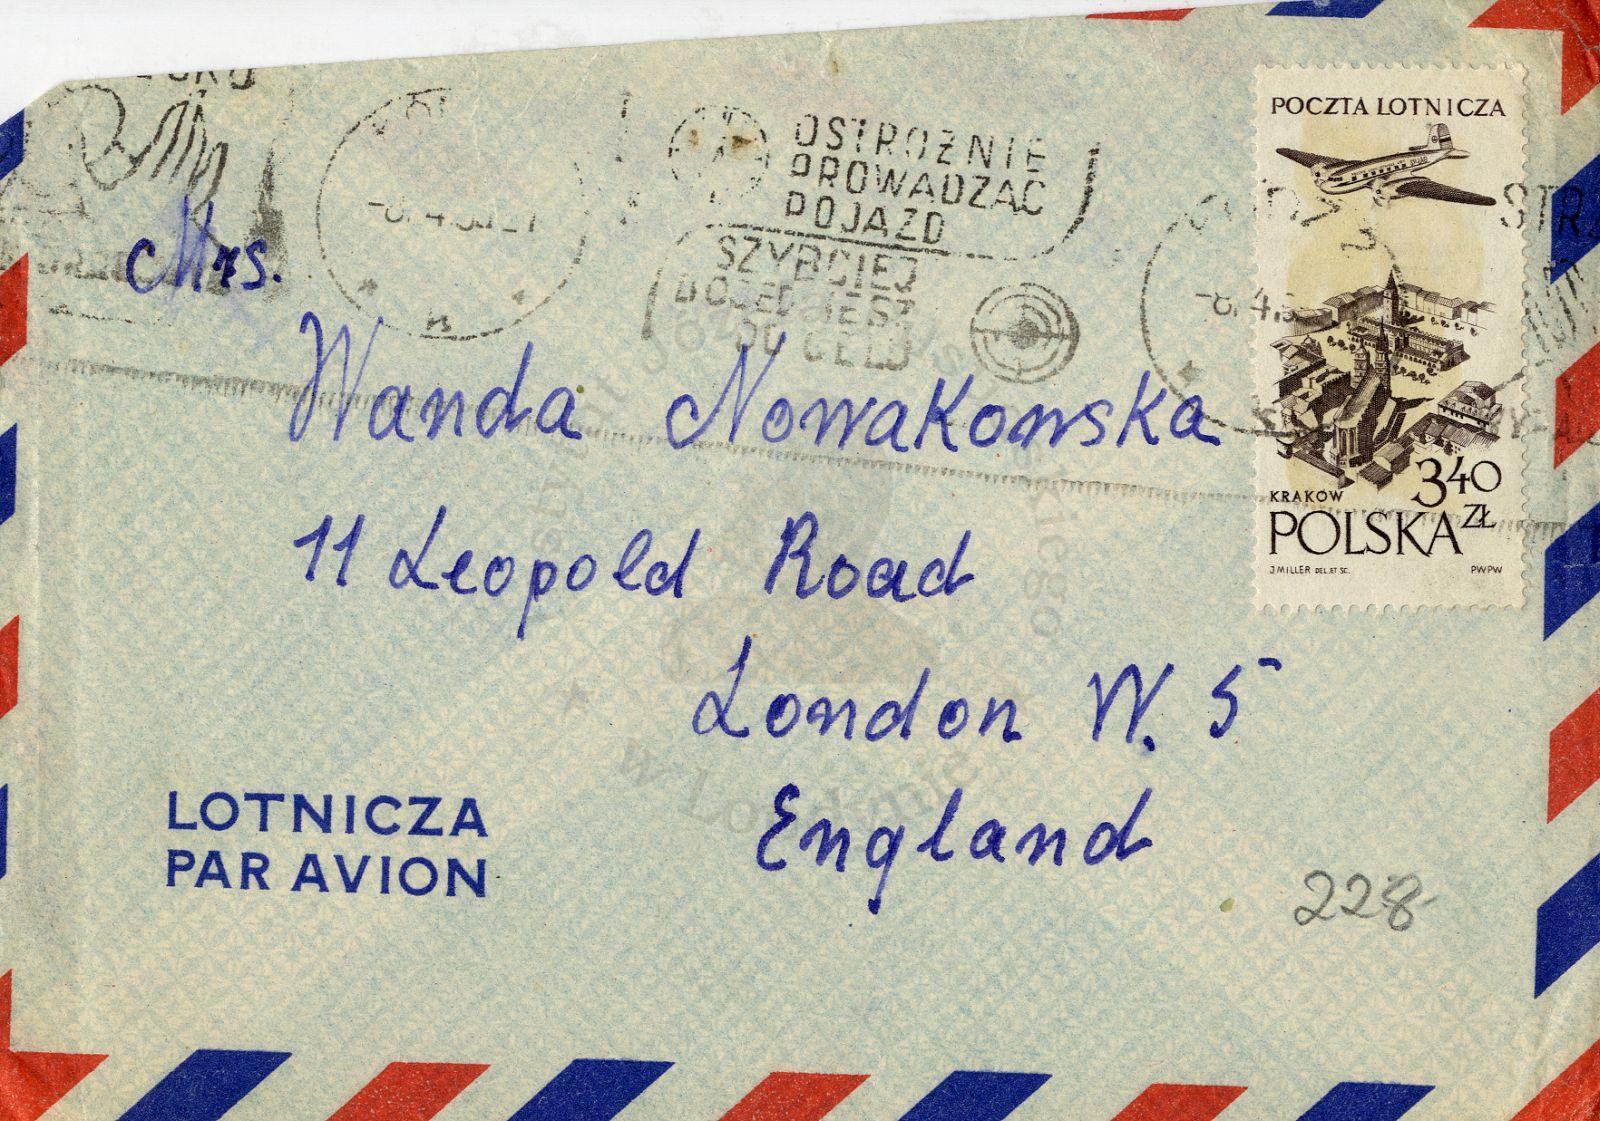 OSTROŻNIE
PROWADZĄC
POJAZD
SZYBCIEJ
DOJEDZIESZ
DO CELU
POCZTA LOTNICZA
Mrs.
Wanda Nowakowska
11 Leopold Road
London W. 5
England
KRAKÓW
3 40 ZŁ
POLSKA
J MILLER DEL. ET SC. PWPW
LOTNICZA
PAR AVION
228